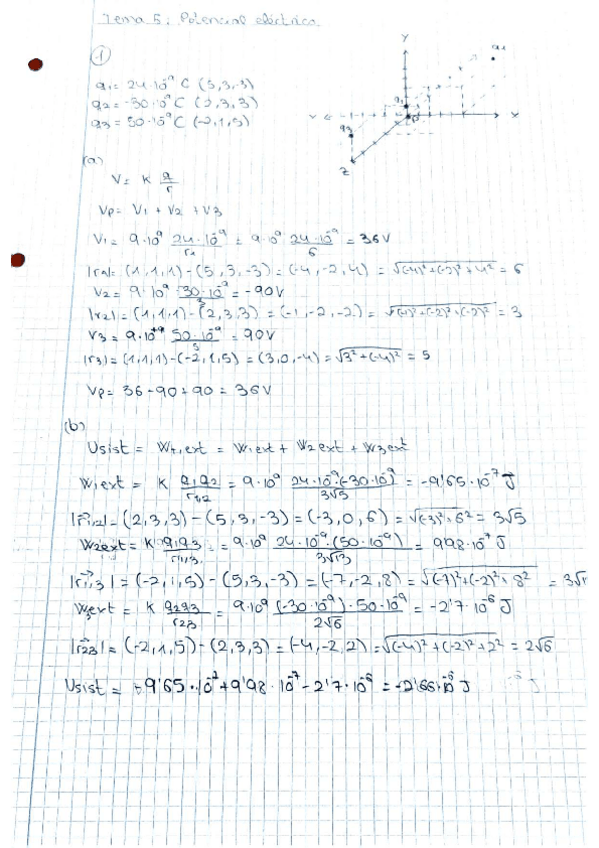 Tema 5: Potencial eléctrico.
1
q1 = 24·10⁻⁹ C (5,3,-3)
q2 = -30·10⁻⁹ C (2,3,3)
q3 = 50·10⁻⁹ C (-2,1,5)
Y
q1
X
q3
Z
(a)
V = K q/r
Vp = V1 + V2 + V3
V1 = 9·10⁹ 24·10⁻⁹/r1 = 9·10⁹ 24·10⁻⁹/6 = 36V
|r1| = (1,1,1)-(5,3,-3) = (-4,-2,4) = √(-4)²+(-2)²+4² = 6
V2 = 9·10⁹ -30·10⁻⁹/3 = -90V
|r2| = (1,1,1)-(2,3,3) = (-1,-2,-2) = √(-1)²+(-2)²+(-2)² = 3
V3 = 9·10⁺⁹ 50·10⁻⁹/5 = 90V
|r3| = (1,1,1)-(-2,1,5) = (3,0,-4) = √3²+(-4)² = 5
Vp = 36-90+90 = 36V
(b)
Usist = W ext = W1ext + W2ext + W3ext
W1ext = K q1q2/r1,2 = 9·10⁹ 24·10⁻⁹·(-30·10⁻⁹)/3√5 = -9'65·10⁻⁷ J
|r1,2| = (2,3,3)-(5,3,-3) = (-3,0,6) = √(-3)²+6² = 3√5
W2ext = K q1q3/r1,3 = 9·10⁹ 24·10⁻⁹·(50·10⁻⁹)/3√13 = 998·10⁻⁷ J
|r1,3| = (-2,1,5)-(5,3,-3) = (-7,-2,8) = √(-7)²+(-2)²+8² = 3√1
W3ext = K q2q3/r2,3 = 9·10⁹ (-30·10⁻⁹)·50·10⁻⁹/2√6 = -2'7·10⁻⁶ J
|r2,3| = (-2,1,5)-(2,3,3) = (-4,-2,2) = √(-4)²+(-2)²+2² = 2√6
Usist = -9'65·10⁻⁷+9'98·10⁻⁷-2'7·10⁻⁶ = -2'66·10⁻⁶ J